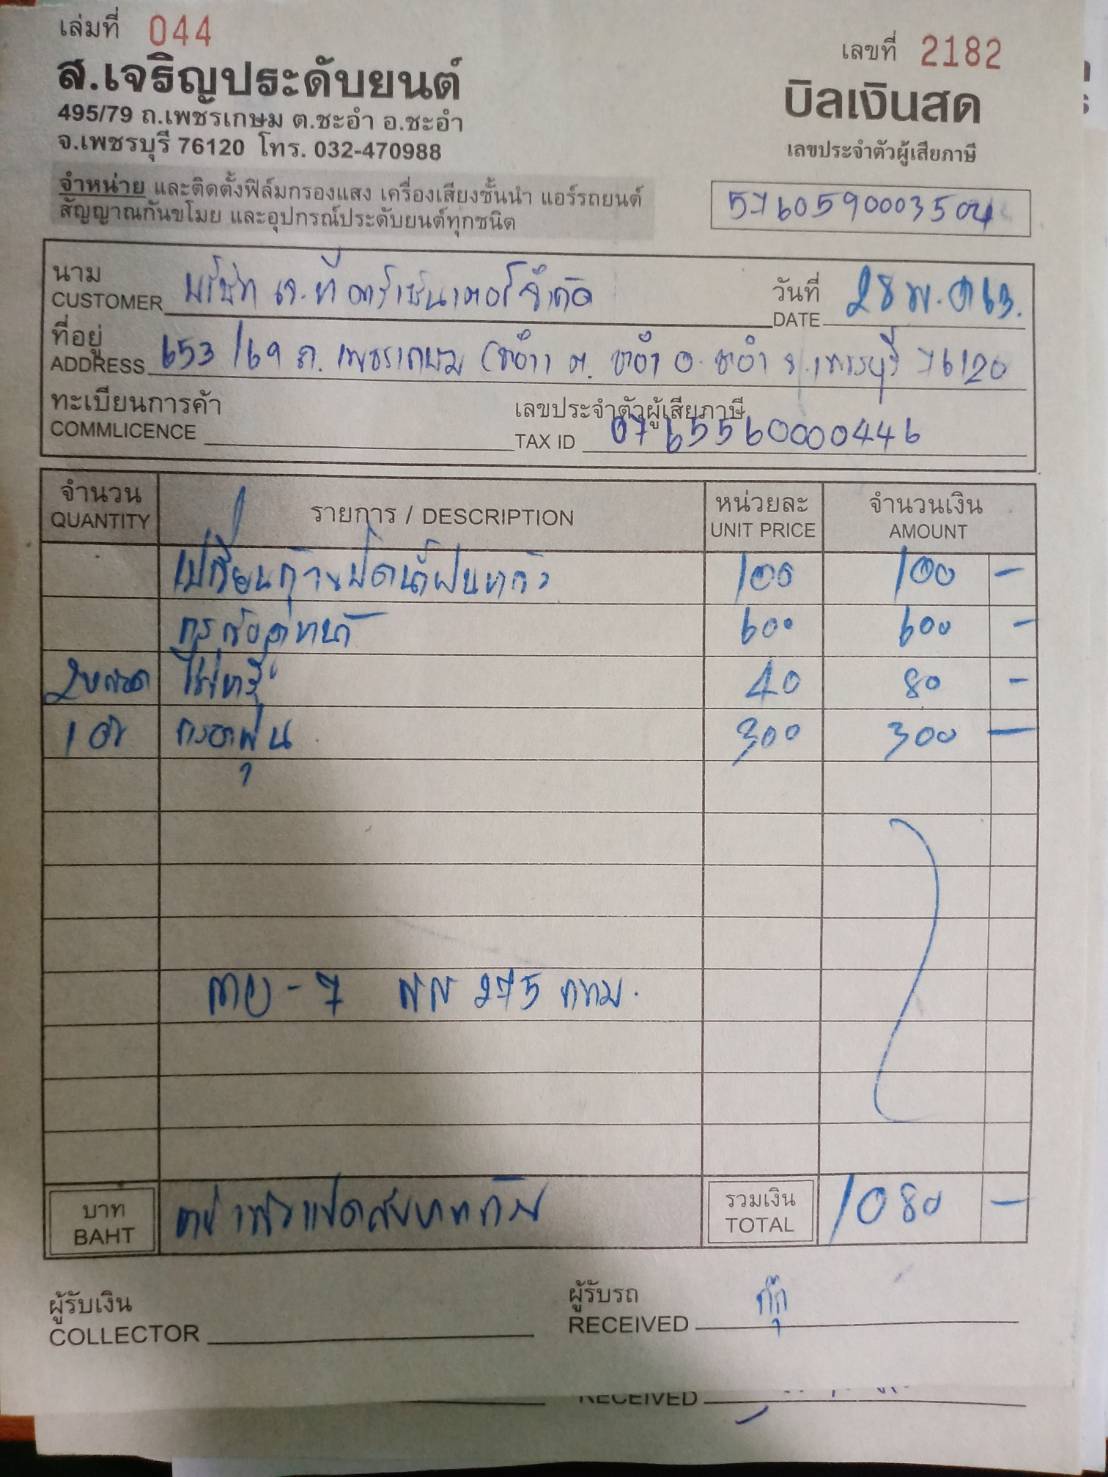 เล่มที่ 044
เลขที่ 2182
ส.เจริญประดับยนต์
บิลเงินสด
495/79 ถ.เพชรเกษม ต.ชะอำ อ.ชะอำ
จ.เพชรบุรี 76120 โทร. 032-470988
เลขประจำตัวผู้เสียภาษี
จำหน่าย และติดตั้งฟิล์มกรองแสง เครื่องเสียงชั้นนำ แอร์รถยนต์
สัญญาณกันขโมย และอุปกรณ์ประดับยนต์ทุกชนิด
5760590003504
นาม
CUSTOMER บริษัท เจ.ที จำกัด
วันที่
DATE 28 พ.ค 63.
ที่อยู่
ADDRESS 653/69 ถ. เพชรเกษม ต. ชะอำ อ. ชะอำ จ.เพชรบุรี 76120
ทะเบียนการค้า
COMMLICENCE
เลขประจำตัวผู้เสียภาษี
TAX ID 0765560000446
จำนวน รายการ / DESCRIPTION หน่วยละ จำนวนเงิน
QUANTITY UNIT PRICE AMOUNT
เปลี่ยนก้านปัดน้ำฝนหลัง 100 100 -
600 600 -
2 หลอด ไฟหรี่ 40 80 -
1 ตัว 300 300 -
- 7 275 กทม.
บาท หนึ่งพันแปดสิบบาทถ้วน รวมเงิน 1080 -
BAHT TOTAL
ผู้รับเงิน
COLLECTOR
ผู้รับรถ
RECEIVED
RECEIVED